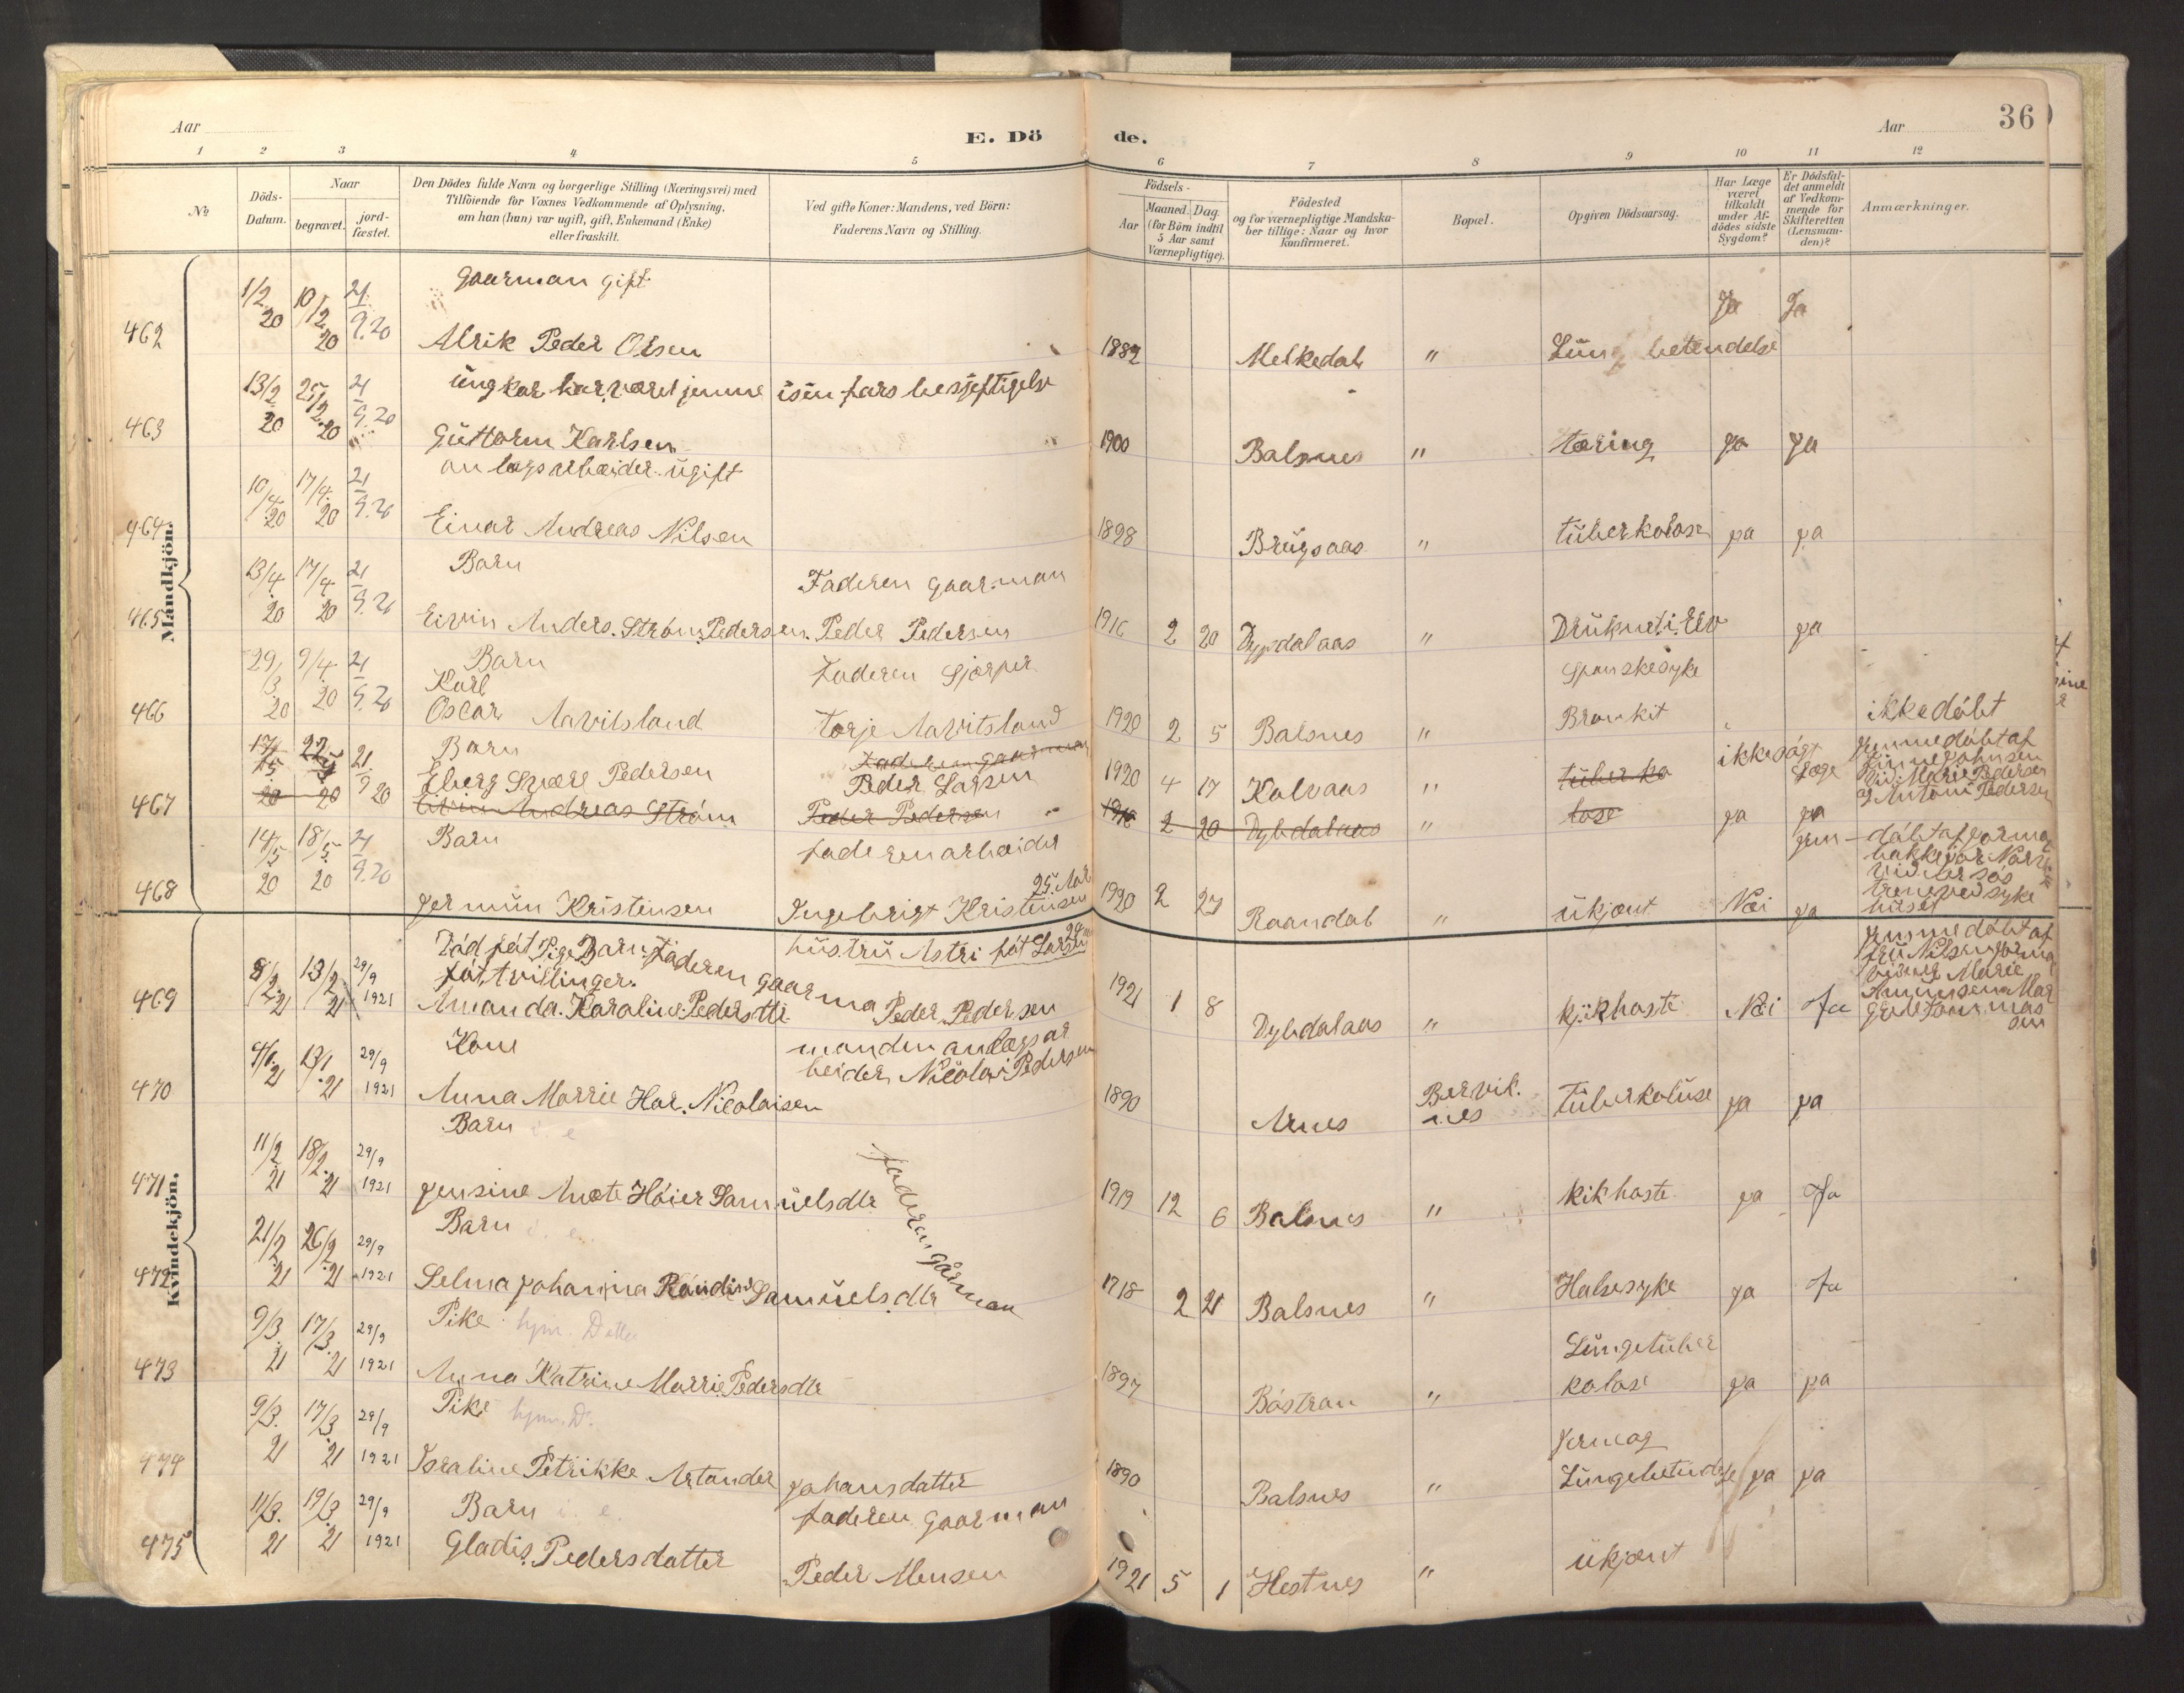 Aar
E. Dö
de.
Aar
36
1 2 3 4 5 6 7 8 9 10 11 12
No
Döds-Datum.
Naar
begravet.
jord-fæstet.
Den Dödes fulde Navn og borgerlige Stilling (Næringsvei) med
Tilföiende for Voxnes Vedkommende af Oplysning,
om han (hun) var ugift, gift, Enkemand (Enke)
eller fraskilt.
Ved gifte Koner: Mandens, ved Börn:
Faderens Navn og Stilling.
Födsels-
Aar
Maaned. Dag.
(for Börn indtil
5 Aar samt
Værnepligtige).
Födested
og for værnepligtige Mandska-
ber tillige: Naar og hvor
konfirmeret.
Bopæl.
Opgiven Dödsaarsag.
Har Læge
været
tilkaldt
under Af-
dödes sidste
Sygdom?
Er Dödsfal-
det anmeldt
af Vedkom-
mende for
Skifteretten
(Lensman-
den)?
Anmærkninger.
Mandkjön.
462 1/2 20 10/2 20 21/9.20 Gaarman gift
Alrik Peder Olsen 1882 Melkedal " Ja Ja
463 13/2 20 25/2 20 21/9.20 ungkar har været jemme isin fars besjeftigelse
Guttorm Karlsen 1900 Balsnes " tæring ja ja
464 10/4 20 17/4 20 21/9.20 anlægs arbæider ugift
Einar Andreas Nilsen 1898 Brugsaas " tuberkolose ja ja
465 13/4 20 17/4 20 21/9.20 Barn Faderen gaarman
Eivin Anders. Ström. Pedersen. Peder Pedersen 1916 2 20 Dypdalaas " Druknet i Elv ja
466 29/3 20 9/4 20 21/9.20 Barn faderen Sjæper
Karl
Oscar Aavitsland Torje Aavitsland 1920 2 5 Balsnes " Spanskesyke
Bronkit ikkedöbt
467 21/9 20 Barn Faderen gaarman
Eberg Sværd Pedersen Peder Larsen 1920 4 17 Kalvaas " tuberko ikkesögt Læge
Andreas Ström Peder Pedersen 1916 2 20 Dybdalaas " lose ja ja
jemmedöbt af
vid. Marie Pedersen
og Antoni Pedersen
468 14/5 20 18/5 20 21/9.20 Barn faderen arbæider
Jermun Kristensen Ingebrigt Kristensen 25. Aar 1920 2 27 Raandal " ukjent Næi ja
jem-döbt af jorma
trene ved syke
huset
hustru Astri föt Larsen
Kvindekjön.
469 8/2 21 13/2 21 29/9 1921 Död föt Pige Barn. faderen gaarma
föt, tvillinger.
Amanda. Karaline. Pedersdtr Peder Pedersen 1921 1 8 Dybdalaas " kjikhoste Næi Ja
jemmedöbt af
fru Nilsen jorma
Marie
470 13/1 21 29/9 1921 Kone manden anlægsar
beider Nicolai Pedersen
Anna Marrie Har. Nicolaisen 1890 Arnes Bervik.nes tuberkoluse ja ja
471 11/2 21 18/2 21 29/9 1921 Barn i. e.
Jensine Anete Höier Samuelsdtr 1919 12 6 Balsnes " kikhoste ja Ja
faderen gårman
472 21/2 21 26/2 21 29/9 1921 Barn i. e.
Selma Johanna Randine Samuelsdtr 1918 2 21 Balsnes " Halsesyke ja Ja
473 9/3 21 17/3 21 29/9 1921 Pike hjm. Datter
Anna Katrine Marrie Pedersdtr 1897 Båstran " Lungetuber
kolose ja ja
474 9/3. 21 17/3 21 29/9 1921 Pike hjm. D.
Israline Petrikke Artander Johansdatter 1890 Balsnes " Lungebetendelse ja ja
475 11/3. 21 19/3 21 29/9 1921 Barn i. e. faderen gaarman
Gladis Pedersdatter Peder Monsen 1921 5 1 Hestnes " ukjent